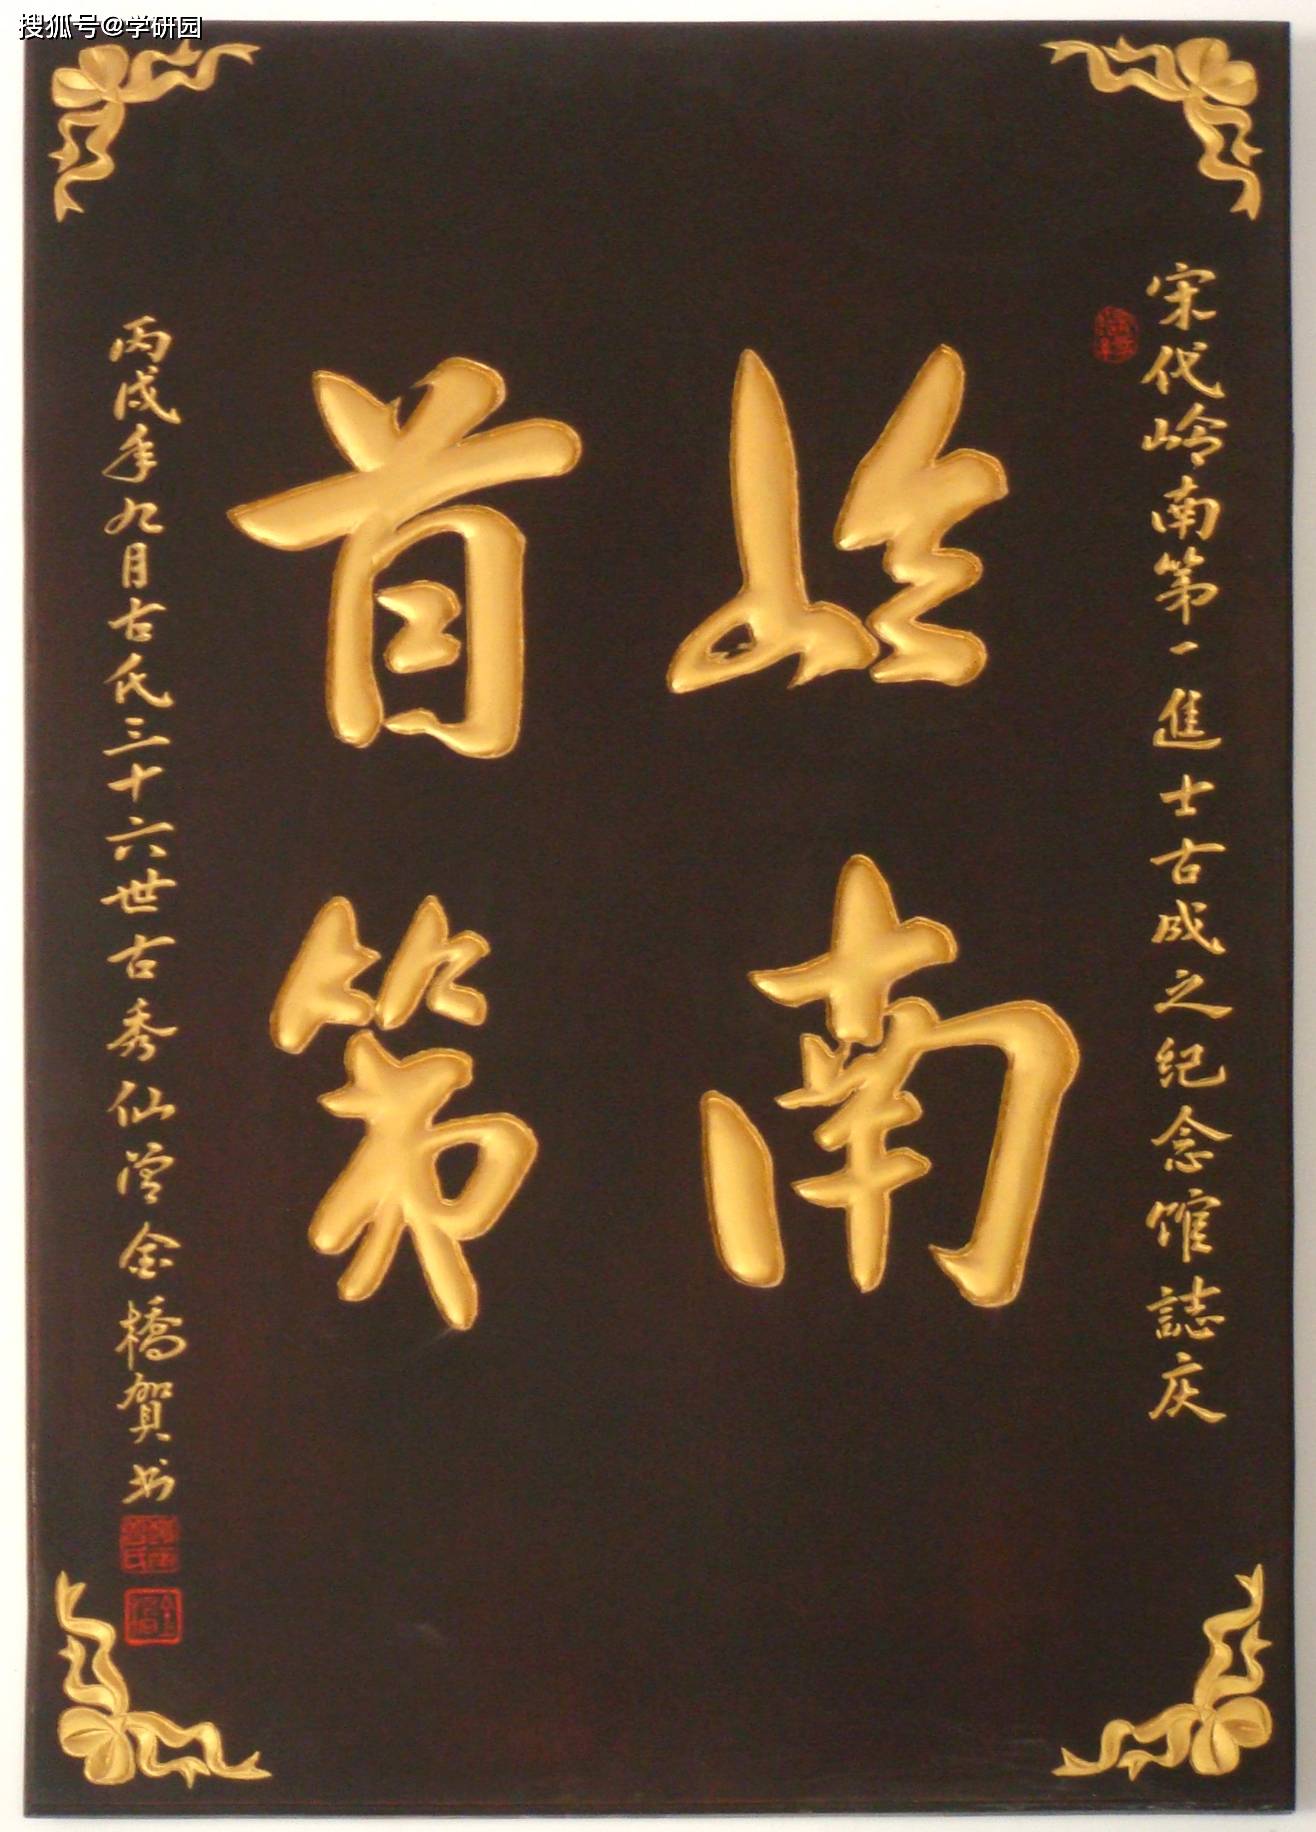 搜狐号@学研园
宋代岭南第一進士古成之纪念馆誌庆
岭南
首第
丙戌年九月古氏三十六世古秀仙曾金橋贺书